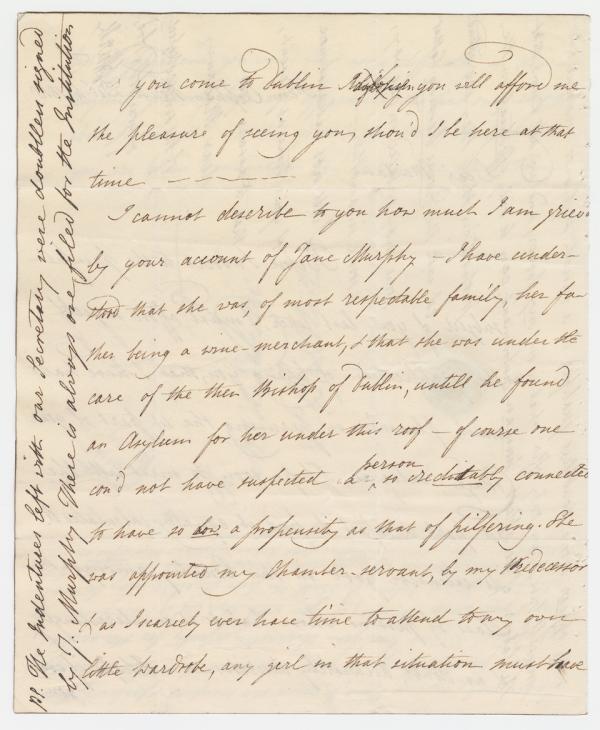 you come to Dublin you will afford me
the pleasure of seeing you, shou'd I be here at that
time — — — —
I cannot describe to you how much I am griev'd
by your account of Jane Murphy – I have under-
stood that she was, of most respectable family, her fa-
ther being a wine-merchant, & that she was under the
care of the then Bishop of Dublin, untill he found
an Asylum for her under this roof – of course one
cou'd not have suspected a person so creditably connected
to have so low a propensity as that of pilfering. She
was appointed my Chamber-servant, by my Predecessor
& as I scarcely ever have time to attend to my own
little wardrobe, any girl in that situation must have
P.S. The Indentures left with our Secretary were doubtless signed
by J: Murphy. There is always one filed for the Institution